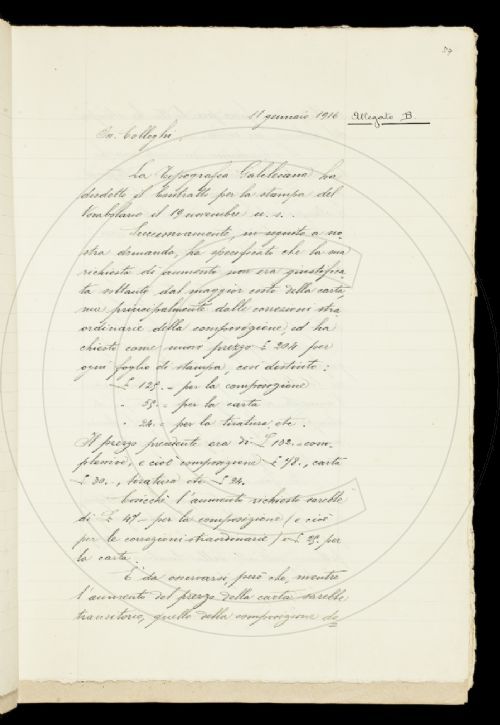 59
11 gennaio 1916 Allegato B.
On. Colleghi,
La Tipografia Galileiana ha
disdetto il Contratto per la stampa del
Vocabolario il 19 novembre u. s..
Successivamente, in seguito a no-
stra domanda, ha specificato che la sua
richiesta di aumento non era giustifica-
ta soltanto dal maggior costo della carta,
ma principalmente dalle correzioni stra
ordinarie della composizione, ed ha
chiesto come nuovo prezzo £ 204 per
ogni foglio di stampa, così distinto:
£ 125.- per la composizione
" 55.- per la carta
" 24.- per la tiratura, etc.
Il prezzo precedente era di £ 132.- com-
plessive, e cioè composizione £ 78., carta
£ 30.-, tiratura etc. £ 24.
Cosicchè l'aumento richiesto sarebbe
di £ 47.- per la composizione (e cioè
per le correzioni straordinarie) e £ 25. per
la carta.
È da osservarsi, però che, mentre
l'aumento del prezzo della carta sarebbe
transitorio, quello della composizione do